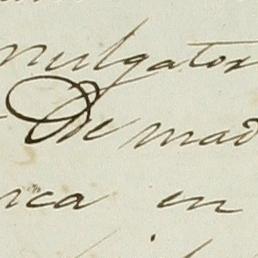 mulgator
De mad
rca en